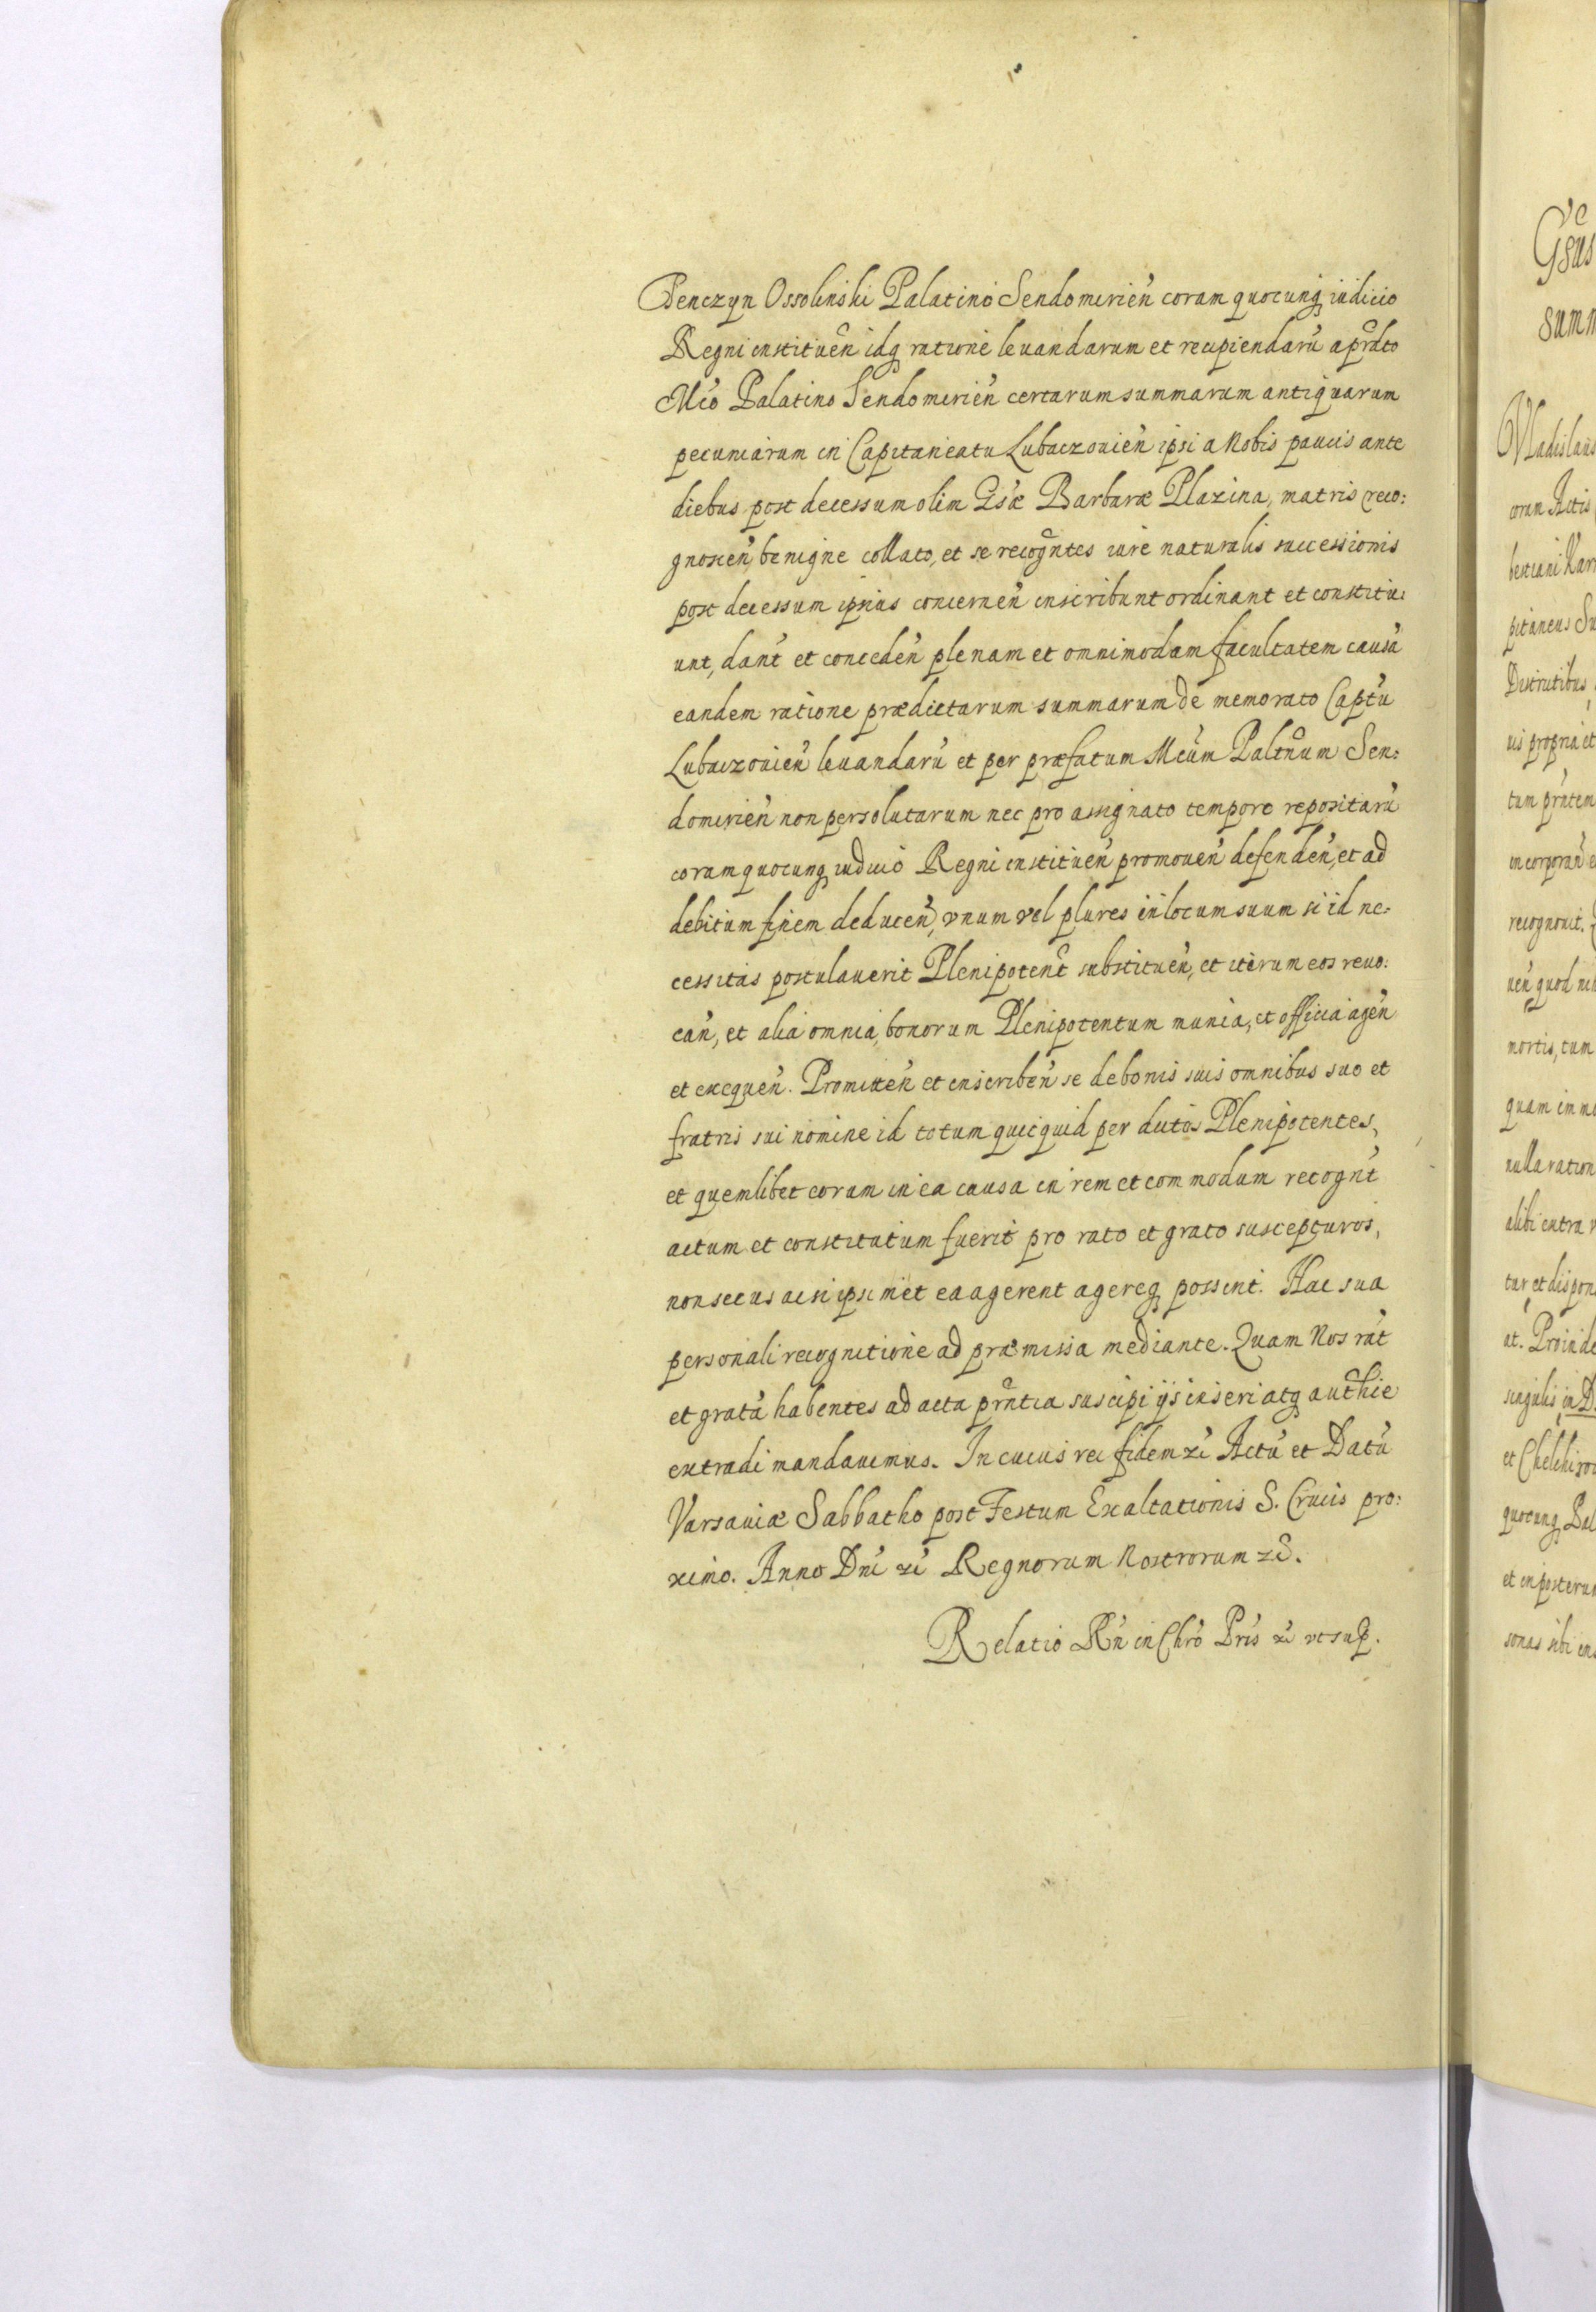 Tenczyn Ossolinski Palatino Sendomirien̄ coram quocunq iudicio
Regni instituen̄ idq ratione leuandarum et recipiendarū a prdto
Mco Palatino Sendomirien̄ certarum summarum antiquarum
pecuniarum in Capitaneatu Lubaczouien̄ ipsi a Nobis paucis ante
diebus post decessum olim Gsæ Barbaræ Plazina, matris reco:
gnoscen̄, benigne collato, et se recogntes iure naturalis successionis
post decessum ipsius concernen̄ inscribunt ordinant et constitu:
unt, dant et conceden̄ plenam et omnimodam facultatem causā
eandem ratione prædictarum summarum de memorato Captū
Lubaczouien̄ leuandarū et per præfatum Mcūm Paltnum Sen:
domirien̄ non persolutarum nec pro assignato tempore repositarū
coram quocunq iudicio Regni instituen̄ promouen̄ defenden̄, et ad
debitum finem deducen̄, vnum vel plures in locum suum si id ne:
cessitas postulauerit Plenipotent substituen̄, et iterum eos reuo:
can̄, et alia omnia, bonorum Plenipotentum munia, et officia agen̄
et exequen̄. Promitten̄ et inscriben̄ se de bonis suis omnibus suo et
fratris sui nomine id totum quicquid per dictos Plenipotentes,
et quemlibet eorum in ea causa in rem et commodum recognt
actum et constitutum fuerit pro rato et grato suscepturos,
non secus ac si ipsimet ea agerent agereq possent. Hac sua
personali recognitione ad præmissa mediante. Quam Nos rāt
et gratā habentes ad acta prntia suscipi ijs inseri atq authie
extradi mandauimus. In cuius rei fidem zc Actū et Datū
Varsauiæ Sabbatho post Festum Exaltationis S. Crucis pro:
ximo. Anno Dni zc Regnorum Nostrorum zc.
Relatio Rn in Chro Pris zc vt sup.
Gsus
summ
Vladislaus
coram Actis
bestiani Kar
pitaneus Su
Districtibus
uis propria et
tum prntem
incorporan̄ e
recognouit.
uen̄ quod ni
mortis, tum
quam immo
nulla ration
alibi extra
tur et dispon
at. Proinde
singulis in D
et Chelchi
quocunq Pal
et in posterum
sonas sibi ins